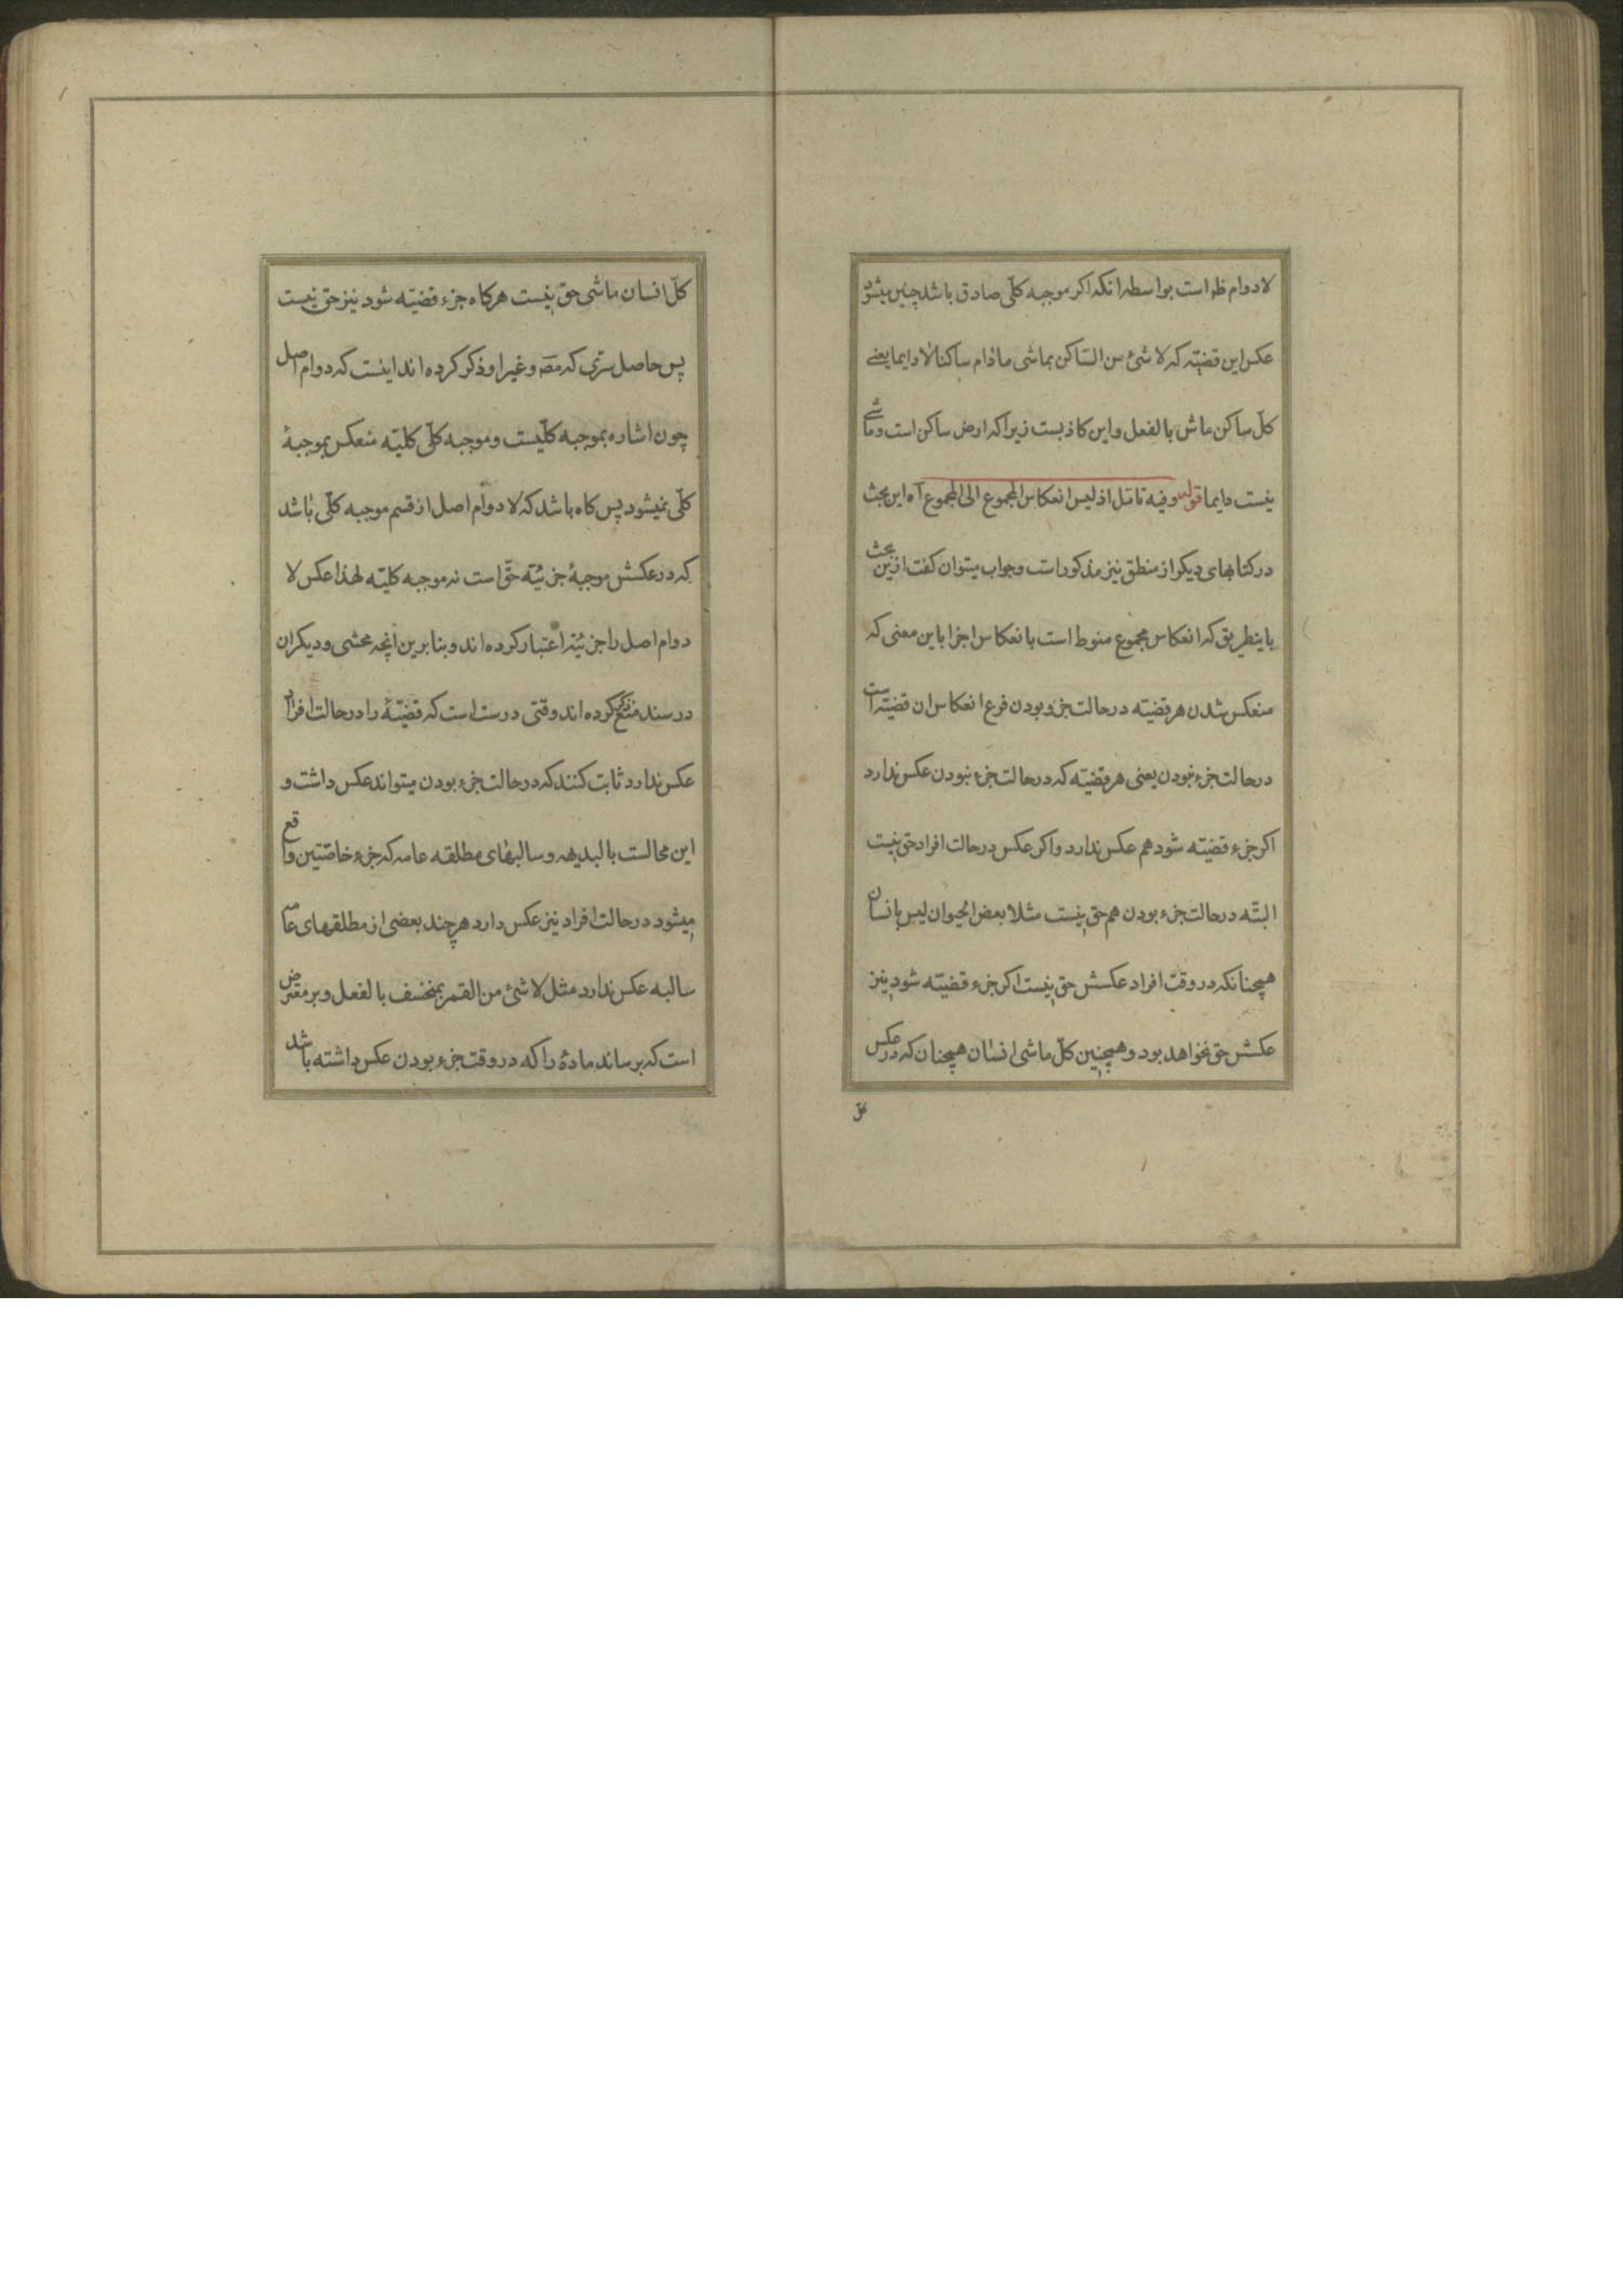 لادوام ظ است بواسطه انکه اکر موجبه کلّی صادق باشد چنین میشود
عکس این قضیّه که لا شئ من السّاکن بماشی مادام ساکنا لا دایما یعنے
کلّ ساکن ماش بالفعل و این کاذبست زیرا که ارض ساکن است و ماشے
نیست دایما قوله وفیه تامّل اذ لیس انعکاس المجموع الی المجموع آه این بحث
در کتابهای دیکر از منطق نیز مذکور است و جواب میتوان کفت ازین بحث
باینطریق که انعکاس مجموع منوط است بانعکاس اجزا باین معنی که
منعکس شدن هر قضیّه در حالت جزو بودن فرع انعکاس ان قضیّه است
در حالت جزء نبودن یعنی هر قضیّه که در حالت جزء نبودن عکس ندارد
اکر جزء قضیّه شود هم عکس ندارد و اکر عکس در حالت افراد حق نیست
البتّه در حالت جزء بودن هم حق نیست مثلا بعض الحیوان لیس بانسان
همچنانکه در وقت افراد عکسش حق نیست اکر جزء قضیّه شود نیز
عکسش حق نخواهد بود و همچنین کلّ ماشی انسان همچنان که در عکس
کل
کلّ انسان ماشی حق نیست هرکاه جزء قضیّه شود نیز حق نیست
پس حاصل سرّی که مصّ و غیر او ذکر کرده اند اینست که دوام اصل
چون اشاره بموجبه کلّیست و موجبه کلّی کلیّه منعکس بموجبهٔ
کلّی نمیشود پس کاه باشد که لا دوام اصل از قسم موجبه کلّی باشد
که در عکسش موجبهٔ جزئیّه حقّ است نه موجبه کلیّه لهذا عکس لا
دوام اصل را جزئیّه اعتبار کرده اند و بنا برین آنچه محشی و دیکران
در سند منع ذکر کرده اند وقتی درست است که قضیّهٔ را در حالت افراد
عکس ندارد ثابت کنند که در حالت جزء بودن میتواند عکس داشت و
این محالست بالبدیهه و سالبهای مطلقه عامه که جزء خاصّتین واقع
میشود در حالت افراد نیز عکس دارد هر چند بعضی از مطلقهای عامه
سالبه عکس ندارد مثل لا شئ من القمر بمنخسف بالفعل و بر معترض
است که برساند مادهٔ را که در وقت جزء بودن عکس داشته باشد